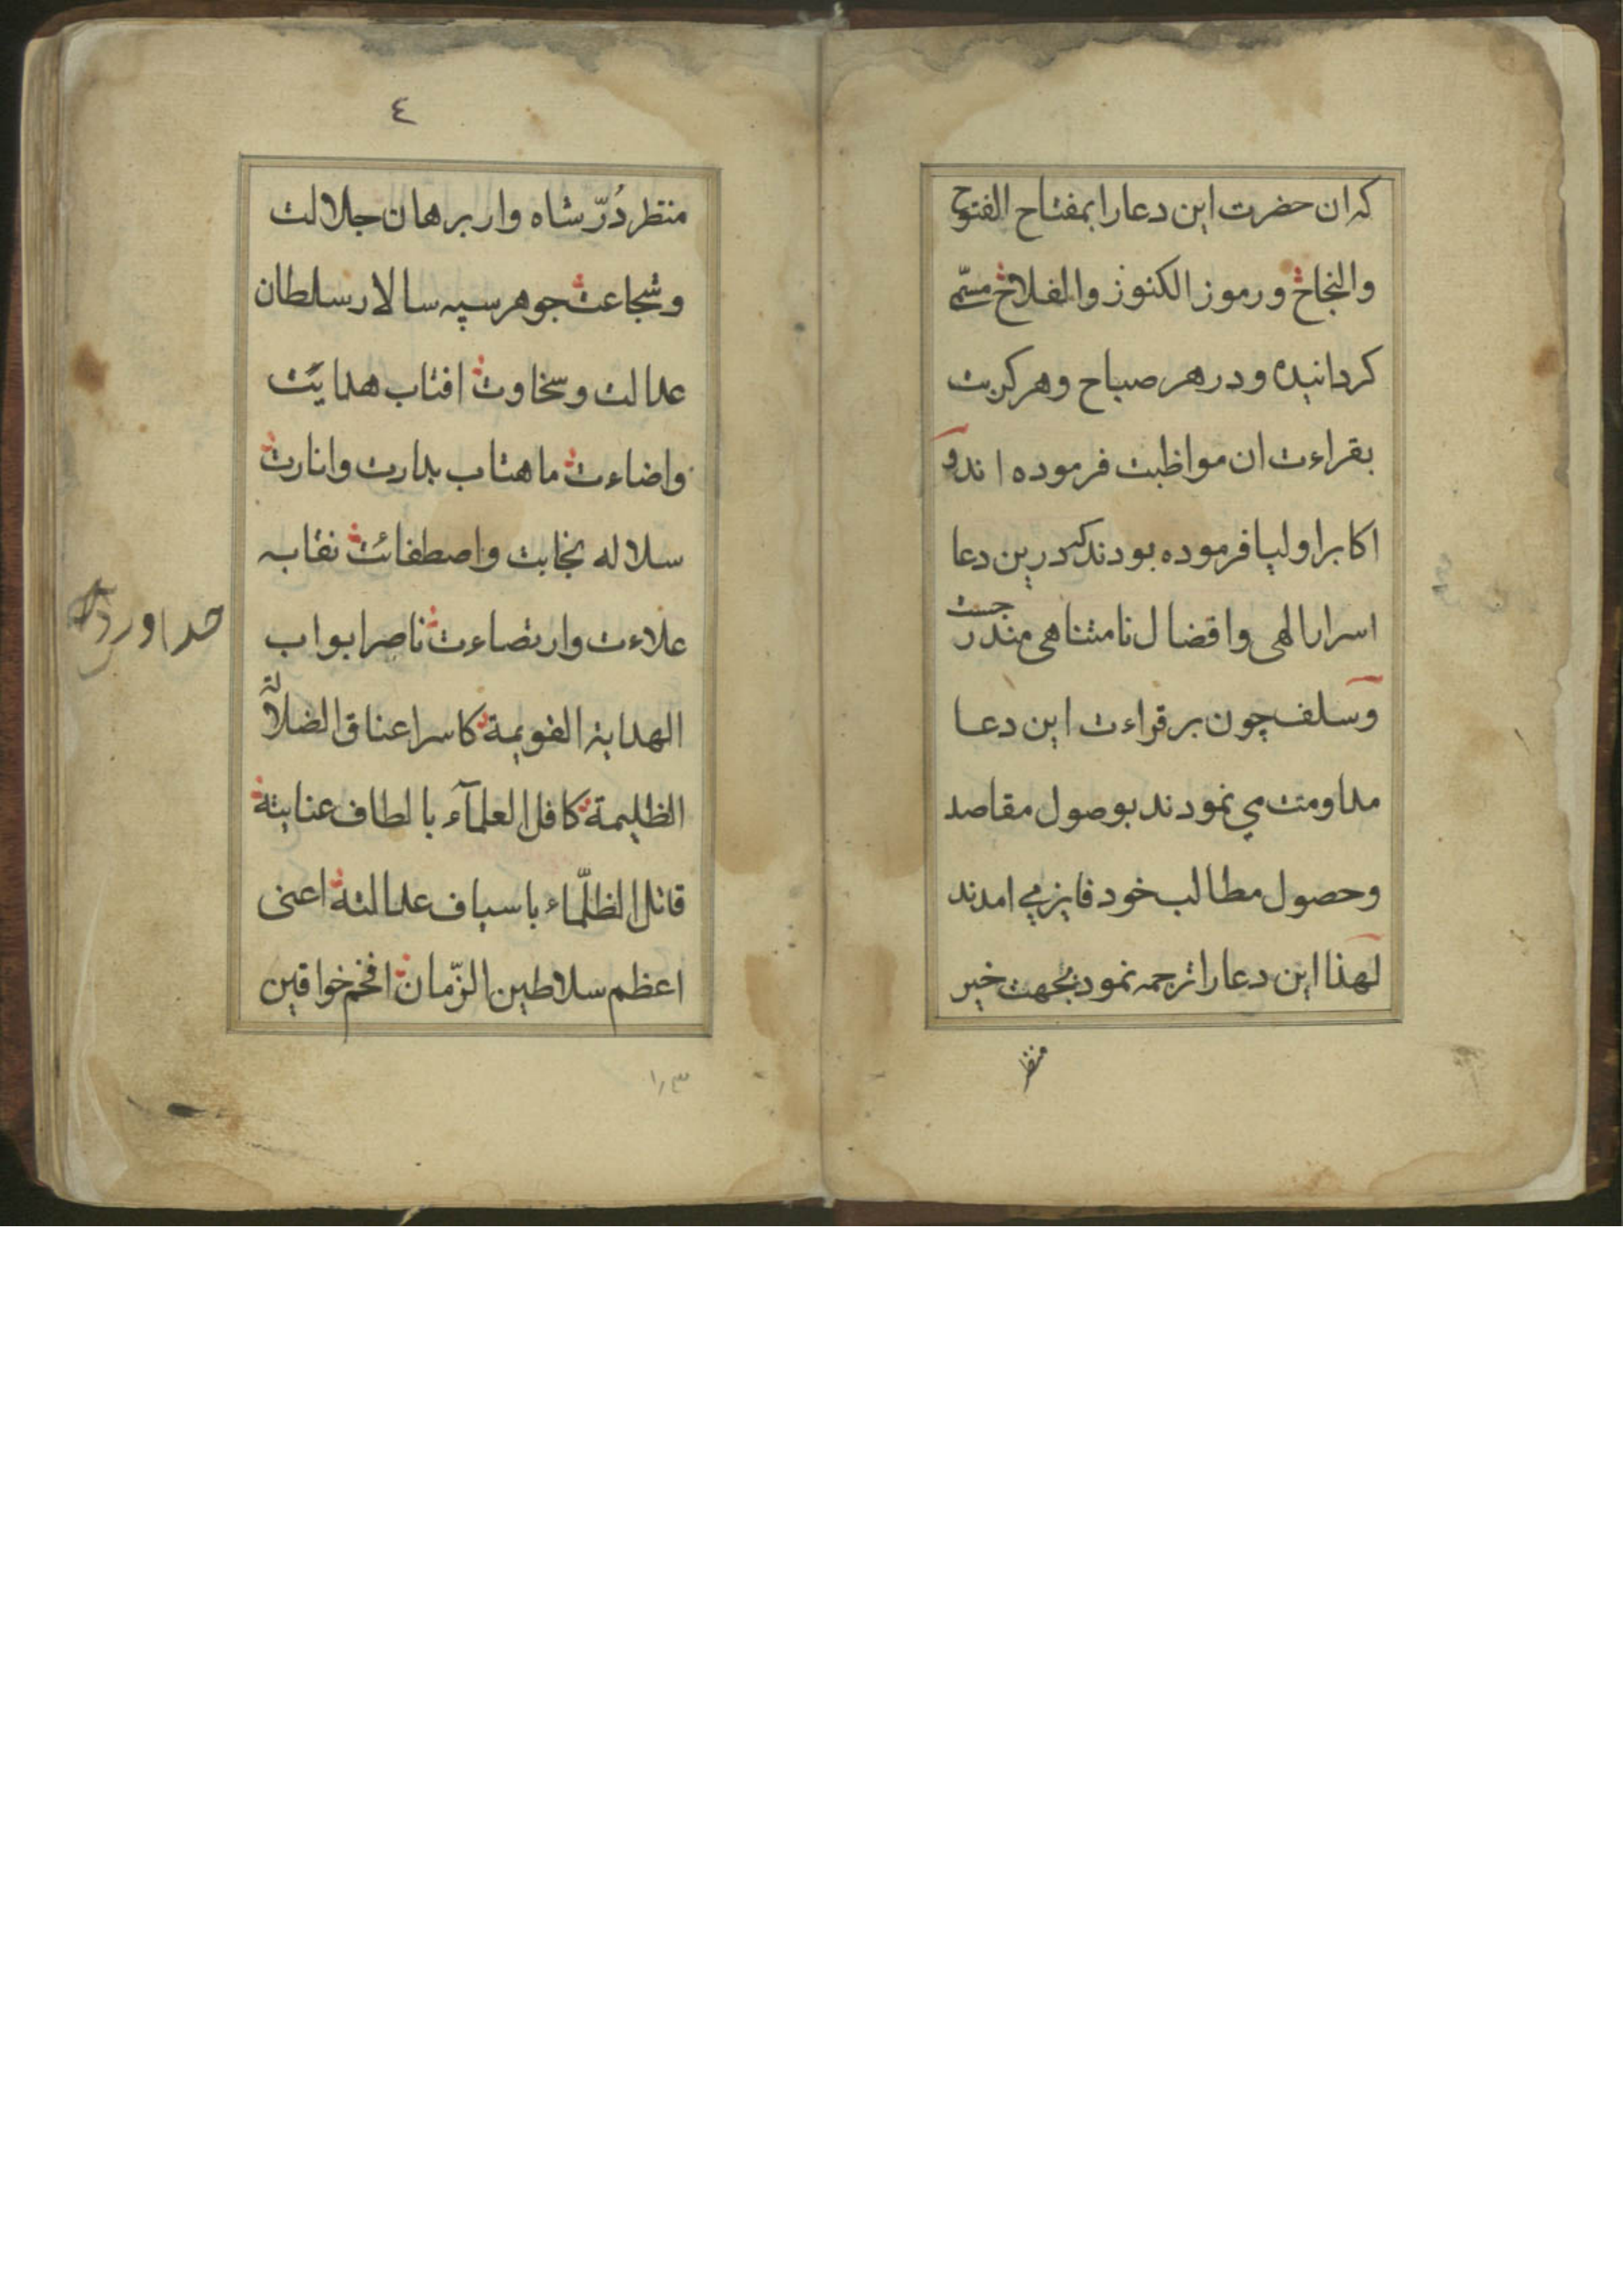 که ان حضرت این دعا را بمفتاح الفتوح
والنجاح ورموز الکنوز والفلاح مسمّی
کردانیده و در هر صباح و هر کربت
بقراءت ان مواظبت فرموده اند و
اکابر اولیا فرموده بودند که درین دعا
اسرار الهی وافضال نامتناهی مندرجست
وسلف چون بر قراءت این دعا
مداومت می نمودند بوصول مقاصد
وحصول مطالب خود فایز می امدند
لهذا این دعا را ترجمه نمود بجهت خیر
منتظر
٤
منتظر دُرّ شاه وار برهان جلالت
وشجاعت جوهر سپه سالار سلطان
عدالت وسخاوت افتاب هدایت
واضاءت ماهتاب بدارت وانارت
سلاله نجابت واصطفائت نقابه
علاءت وارتضاءت ناصر ابواب
الهدایة القویمة کاسر اعناق الضلالة
الظلیمة کافل العلمآء بالطاف عنایتة
قاتل الظلّماء باسیاف عدالتة اعنی
اعظم سلاطین الزّمان افخم خواقین